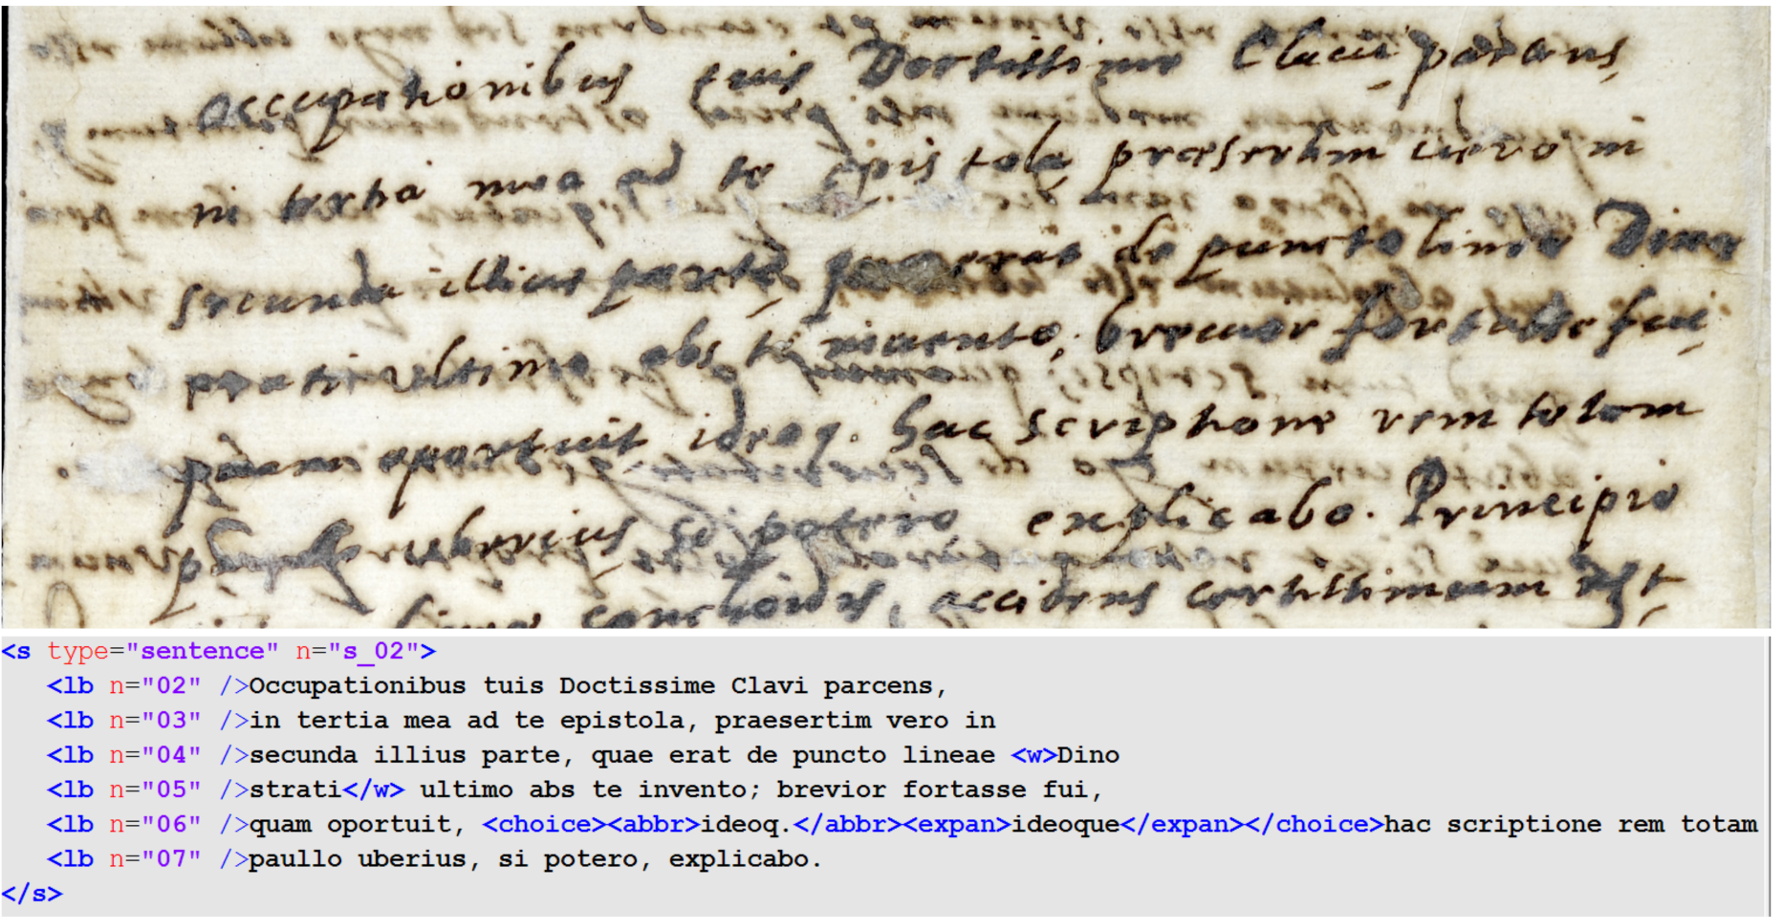 occupationibus tuis Doctissime Clavi parcens,
in tertia mea ad te epistola praesertim vero in
secunda illius parte, erat de puncto lineae Dino
ultimo abs te invento; brevior fortasse fui,
quam oportuit ideoq. hac scriptione rem totam
uberius, si potero explicabo. Principio
accidens certissimum est
<s type="sentence" n="s_02">
<lb n="02" />Occupationibus tuis Doctissime Clavi parcens,
<lb n="03" />in tertia mea ad te epistola, praesertim vero in
<lb n="04" />secunda illius parte, quae erat de puncto lineae <w>Dino
<lb n="05" />strati</w> ultimo abs te invento; brevior fortasse fui,
<lb n="06" />quam oportuit, <choice><abbr>ideoq.</abbr><expan>ideoque</expan></choice>hac scriptione rem totam
<lb n="07" />paullo uberius, si potero, explicabo.
</s>